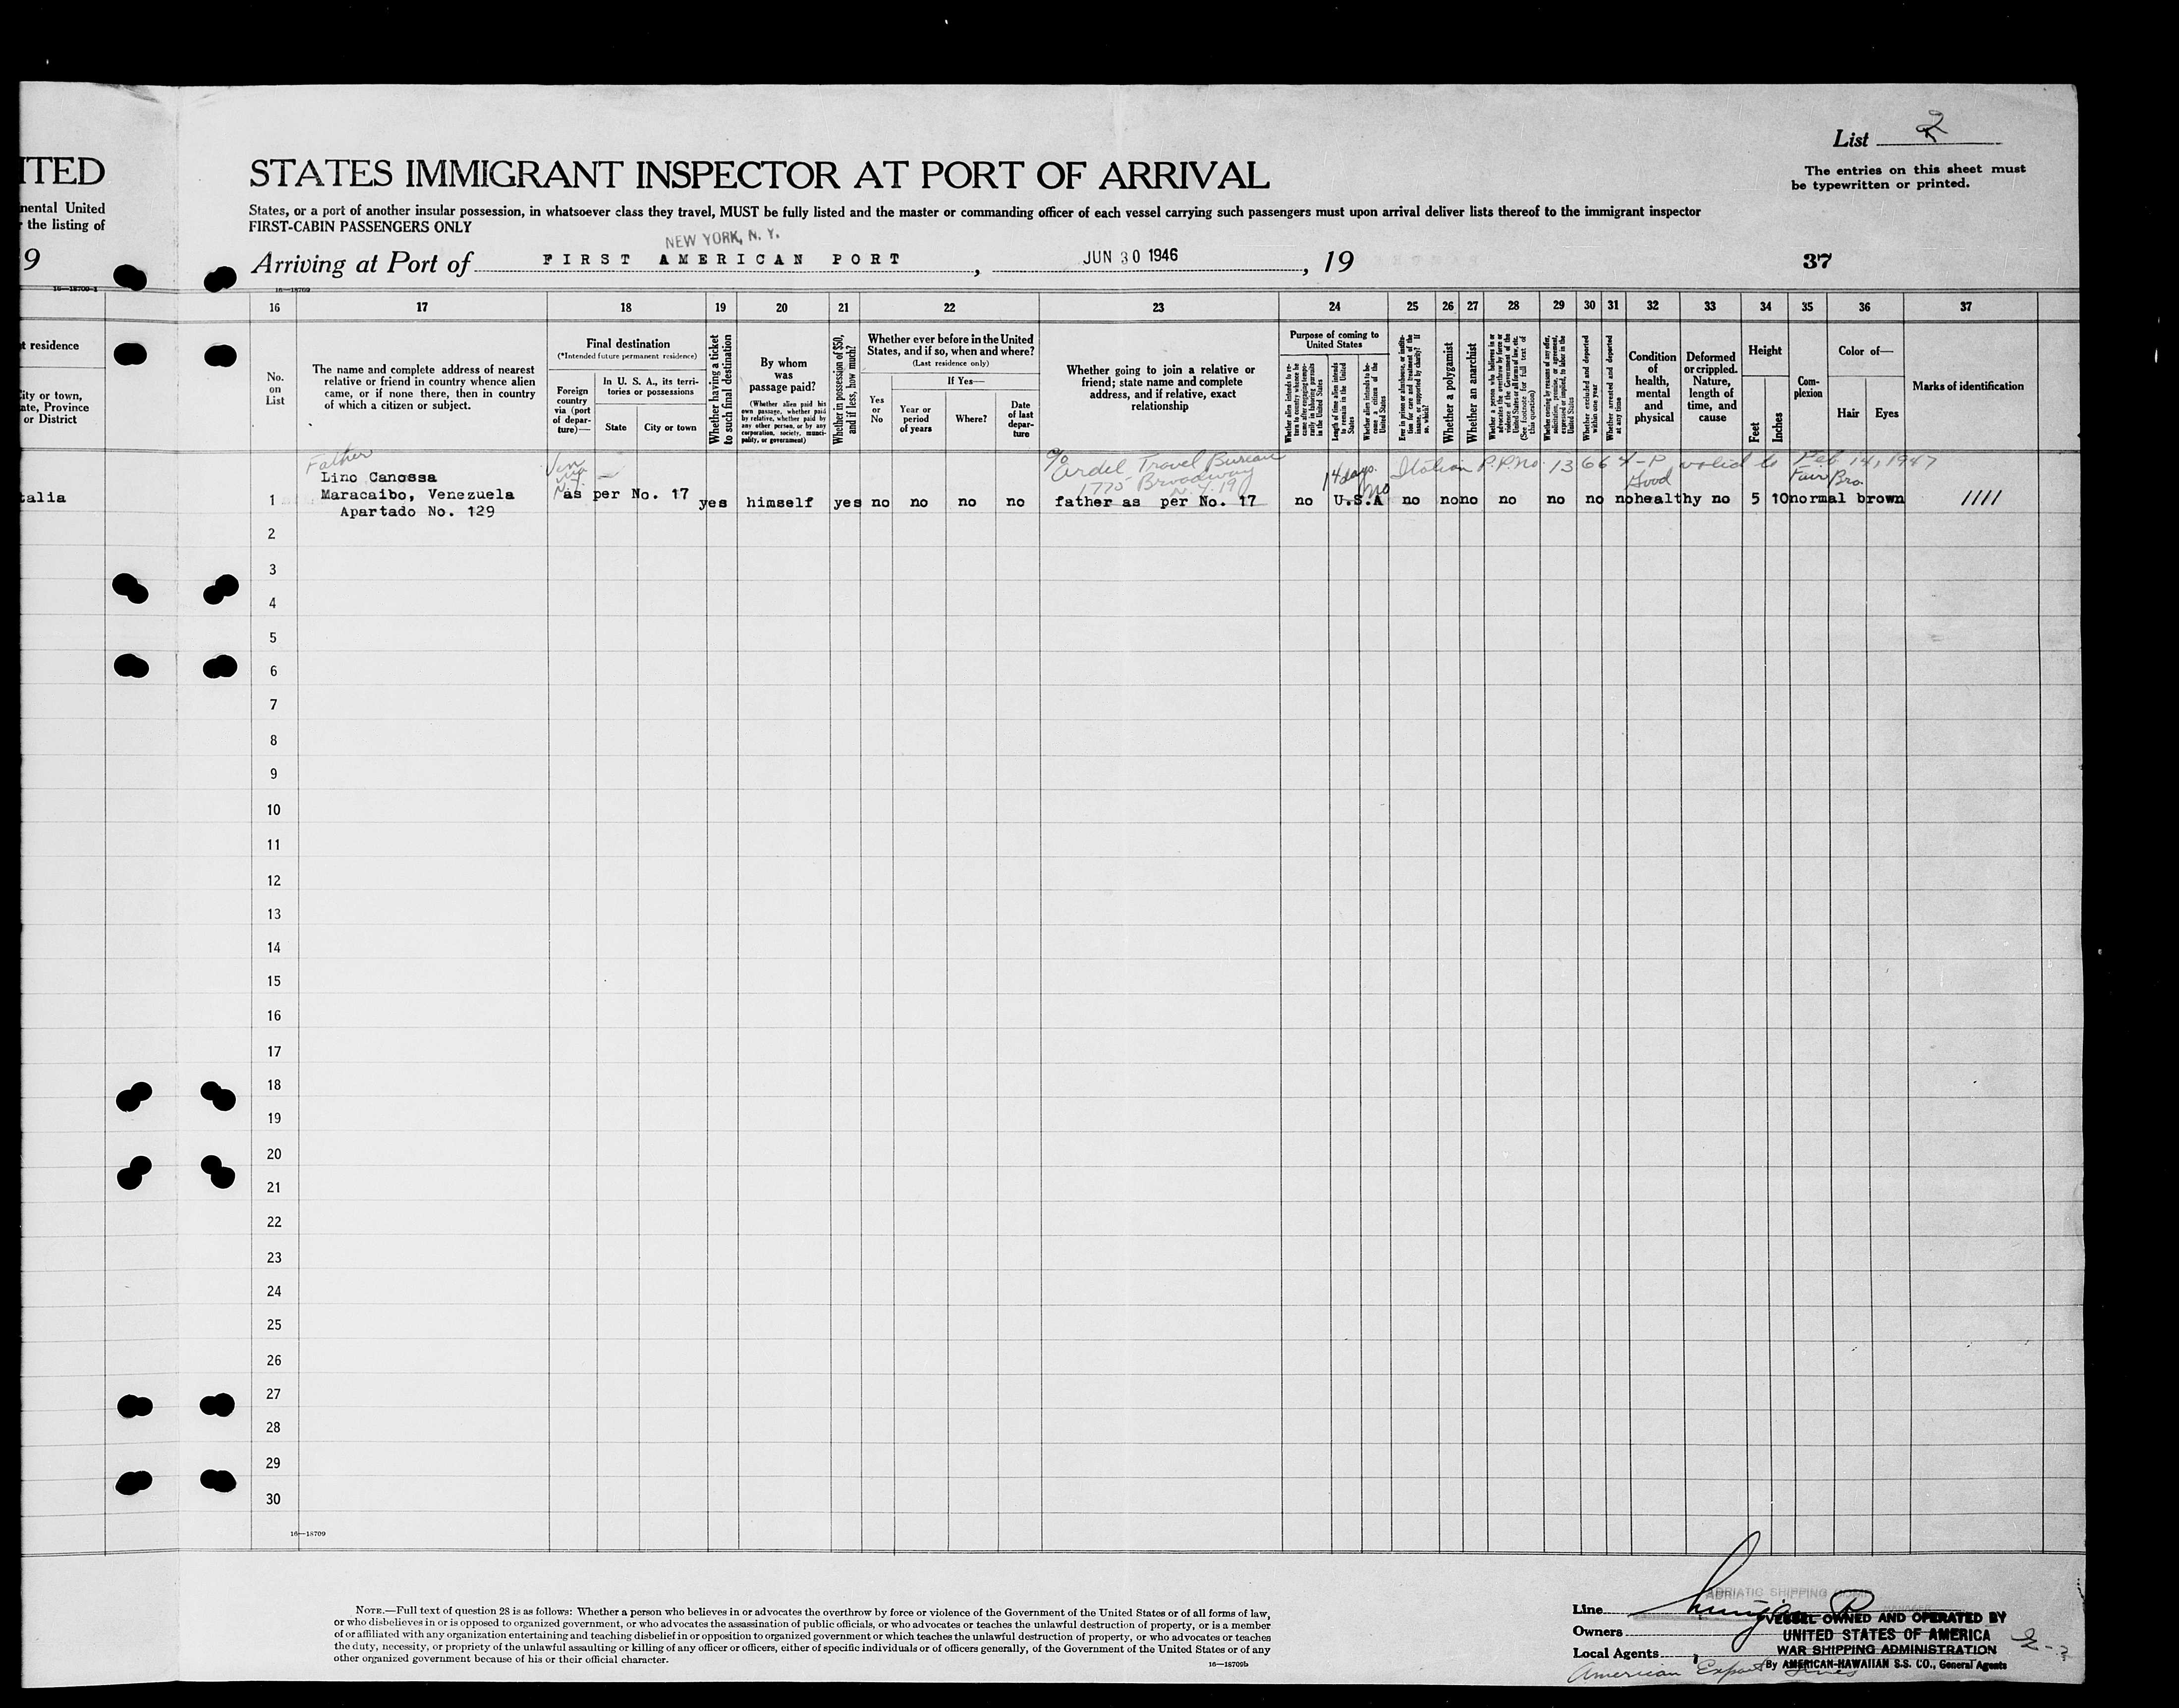 List 2
The entries on this sheet must
be typewritten or printed.
ITED
STATES IMMIGRANT INSPECTOR AT PORT OF ARRIVAL
nental United
the listing of
States, or a port of another insular possession, in whatsoever class they travel, MUST be fully listed and the master or commanding officer of each vessel carrying such passengers must upon arrival deliver lists thereof to the immigrant inspector
FIRST-CABIN PASSENGERS ONLY
NEW YORK, N. Y.
9
Arriving at Port of FIRST AMERICAN PORT, JUN 30 1946, 19 37
16—18709-1
16—18709
16 17 18 19 20 21 22 23 24 25 26 27 28 29 30 31 32 33 34 35 36 37
t residence
City or town,
ate, Province
or District
No.
on
List
The name and complete address of nearest
relative or friend in country whence alien
came, or if none there, then in country
of which a citizen or subject.
Final destination
(*Intended future permanent residence)
Foreign
country
via (port
of depar-
ture)—
In U. S. A., its terri-
tories or possessions
State
City or town
Whether having a ticket
to such final destination
By whom
was
passage paid?
(Whether alien paid his
own passage, whether paid
by relative, whether paid by
any other person, or by any
corporation, society, munici-
pality, or government)
Whether in possession of $50,
and if less, how much?
Whether ever before in the United
States, and if so, when and where?
(Last residence only)
Yes
or
No
If Yes—
Year or
period
of years
Where?
Date
of last
depar-
ture
Whether going to join a relative or
friend; state name and complete
address, and if relative, exact
relationship
Purpose of coming to
United States
Whether alien intends to re-
turn to country whence he
came after engaging tempo-
rarily in laboring pursuits
in the United States
Length of time alien intends
to remain in the United
States
Whether alien intends to be-
come a citizen of the
United States
Ever in prison or almshouse, or institu-
tion for care and treatment of the
insane, or supported by charity? If
so, which?
Whether a polygamist
Whether an anarchist
Whether a person who believes in or
advocates the overthrow by force or
violence of the Government of the
United States or all forms of law, etc.
(See footnote for full text of
this question)
Whether coming by reasons of any offer,
solicitation, promise, or agreement,
expressed or implied, to labor in the
United States
Whether excluded and deported
within one year
Whether arrested and deported
at any time
Condition
of
health,
mental
and
physical
Deformed
or crippled.
Nature,
length of
time, and
cause
Height
Feet
Inches
Com-
plexion
Color of—
Hair
Eyes
Marks of identification
Father
c/o Ardel Travel Bureau
1775 Broadway
N.Y. 19
14 days.
No
Italian P.P. No. 13664-P valid to Feb 14, 1947
Good
Fair Bro.
talia
Lino Canossa
1 Maracaibo, Venezuela as per No. 17 yes himself yes no no no no father as per No. 17 no U.S.A no no no no no no no healthy no 5 10 normal brown ////
Apartado No. 129
2
3
4
5
6
7
8
9
10
11
12
13
14
15
16
17
18
19
20
21
22
23
24
25
26
27
28
29
30
16—18709
NOTE.—Full text of question 28 is as follows: Whether a person who believes in or advocates the overthrow by force or violence of the Government of the United States or of all forms of law,
or who disbelieves in or is opposed to organized government, or who advocates the assassination of public officials, or who advocates or teaches the unlawful destruction of property, or is a member
of or affiliated with any organization entertaining and teaching disbelief in or opposition to organized government or which teaches the unlawful destruction of property, or who advocates or teaches
the duty, necessity, or propriety of the unlawful assaulting or killing of any officer or officers, either of specific individuals or of officers generally, of the Government of the United States or of any
other organized government because of his or their official character.
16—18709b
ADRIATIC SHIPPING
MANAGER
Line
Owners
Local Agents
VESSEL OWNED AND OPERATED BY
UNITED STATES OF AMERICA
WAR SHIPPING ADMINISTRATION
By AMERICAN-HAWAIIAN S.S. CO., General Agents
American Export Lines